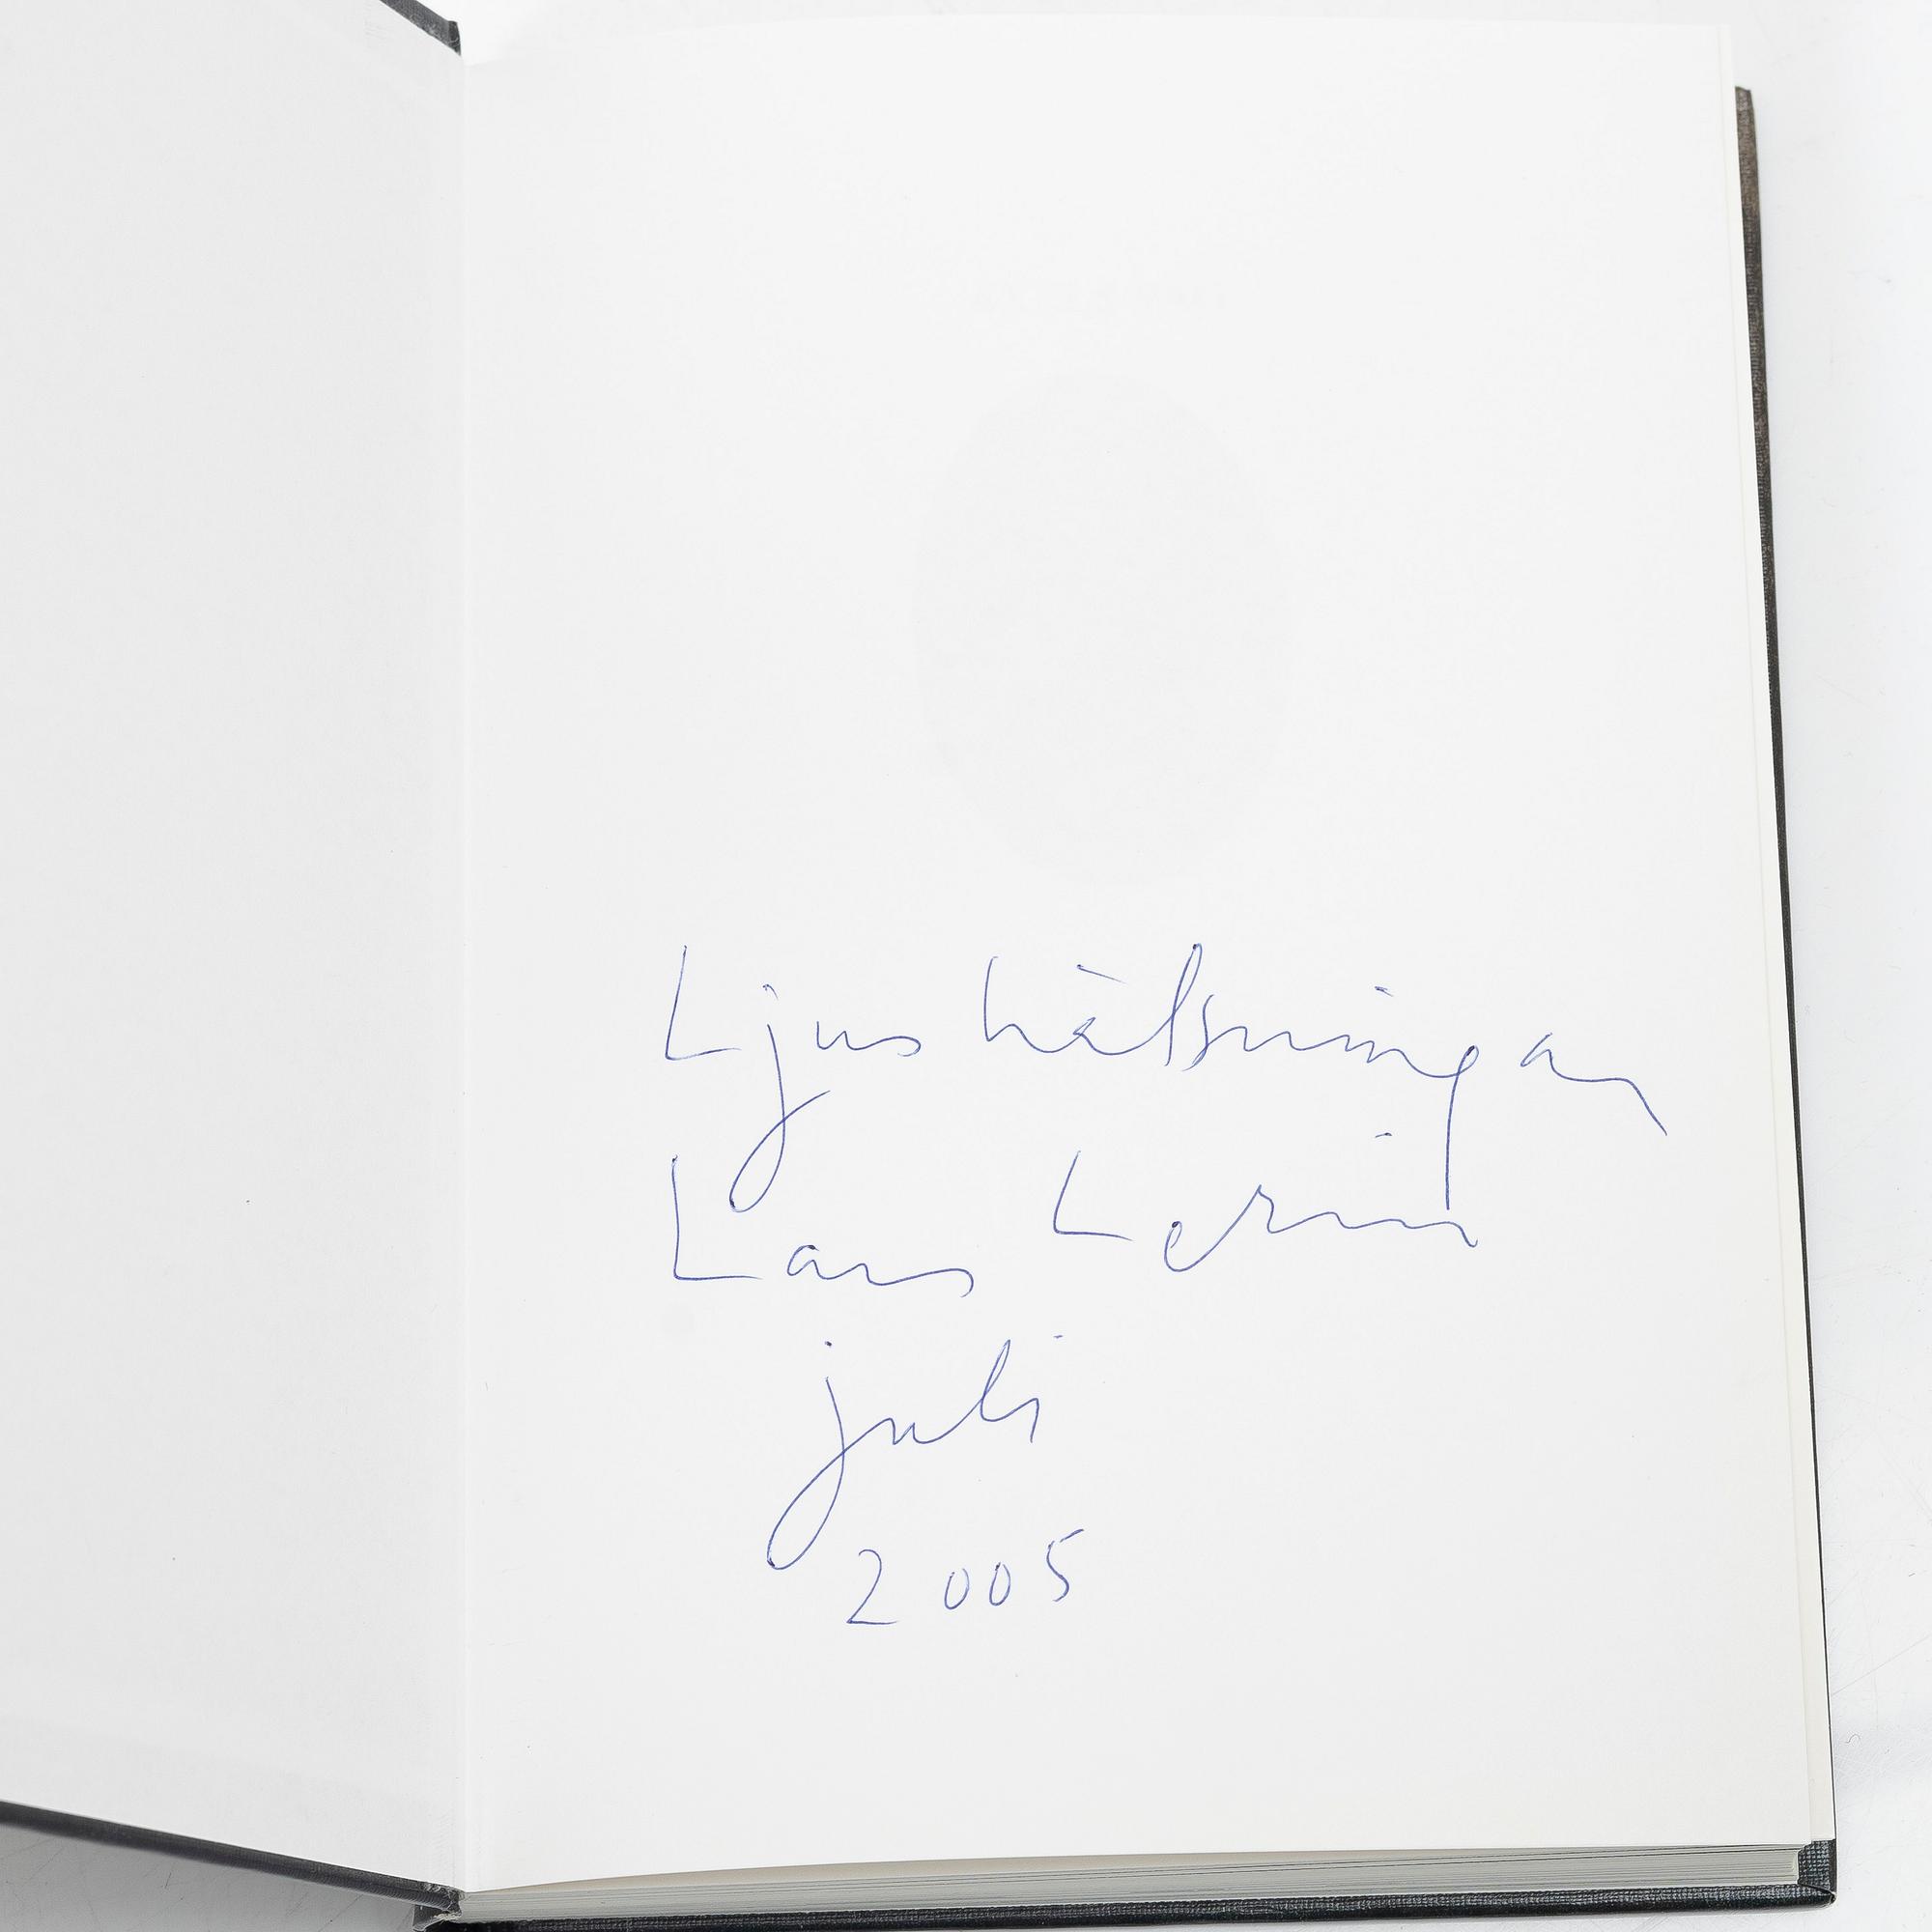 Ljushälsningar
Lars Lerin
juli
2005